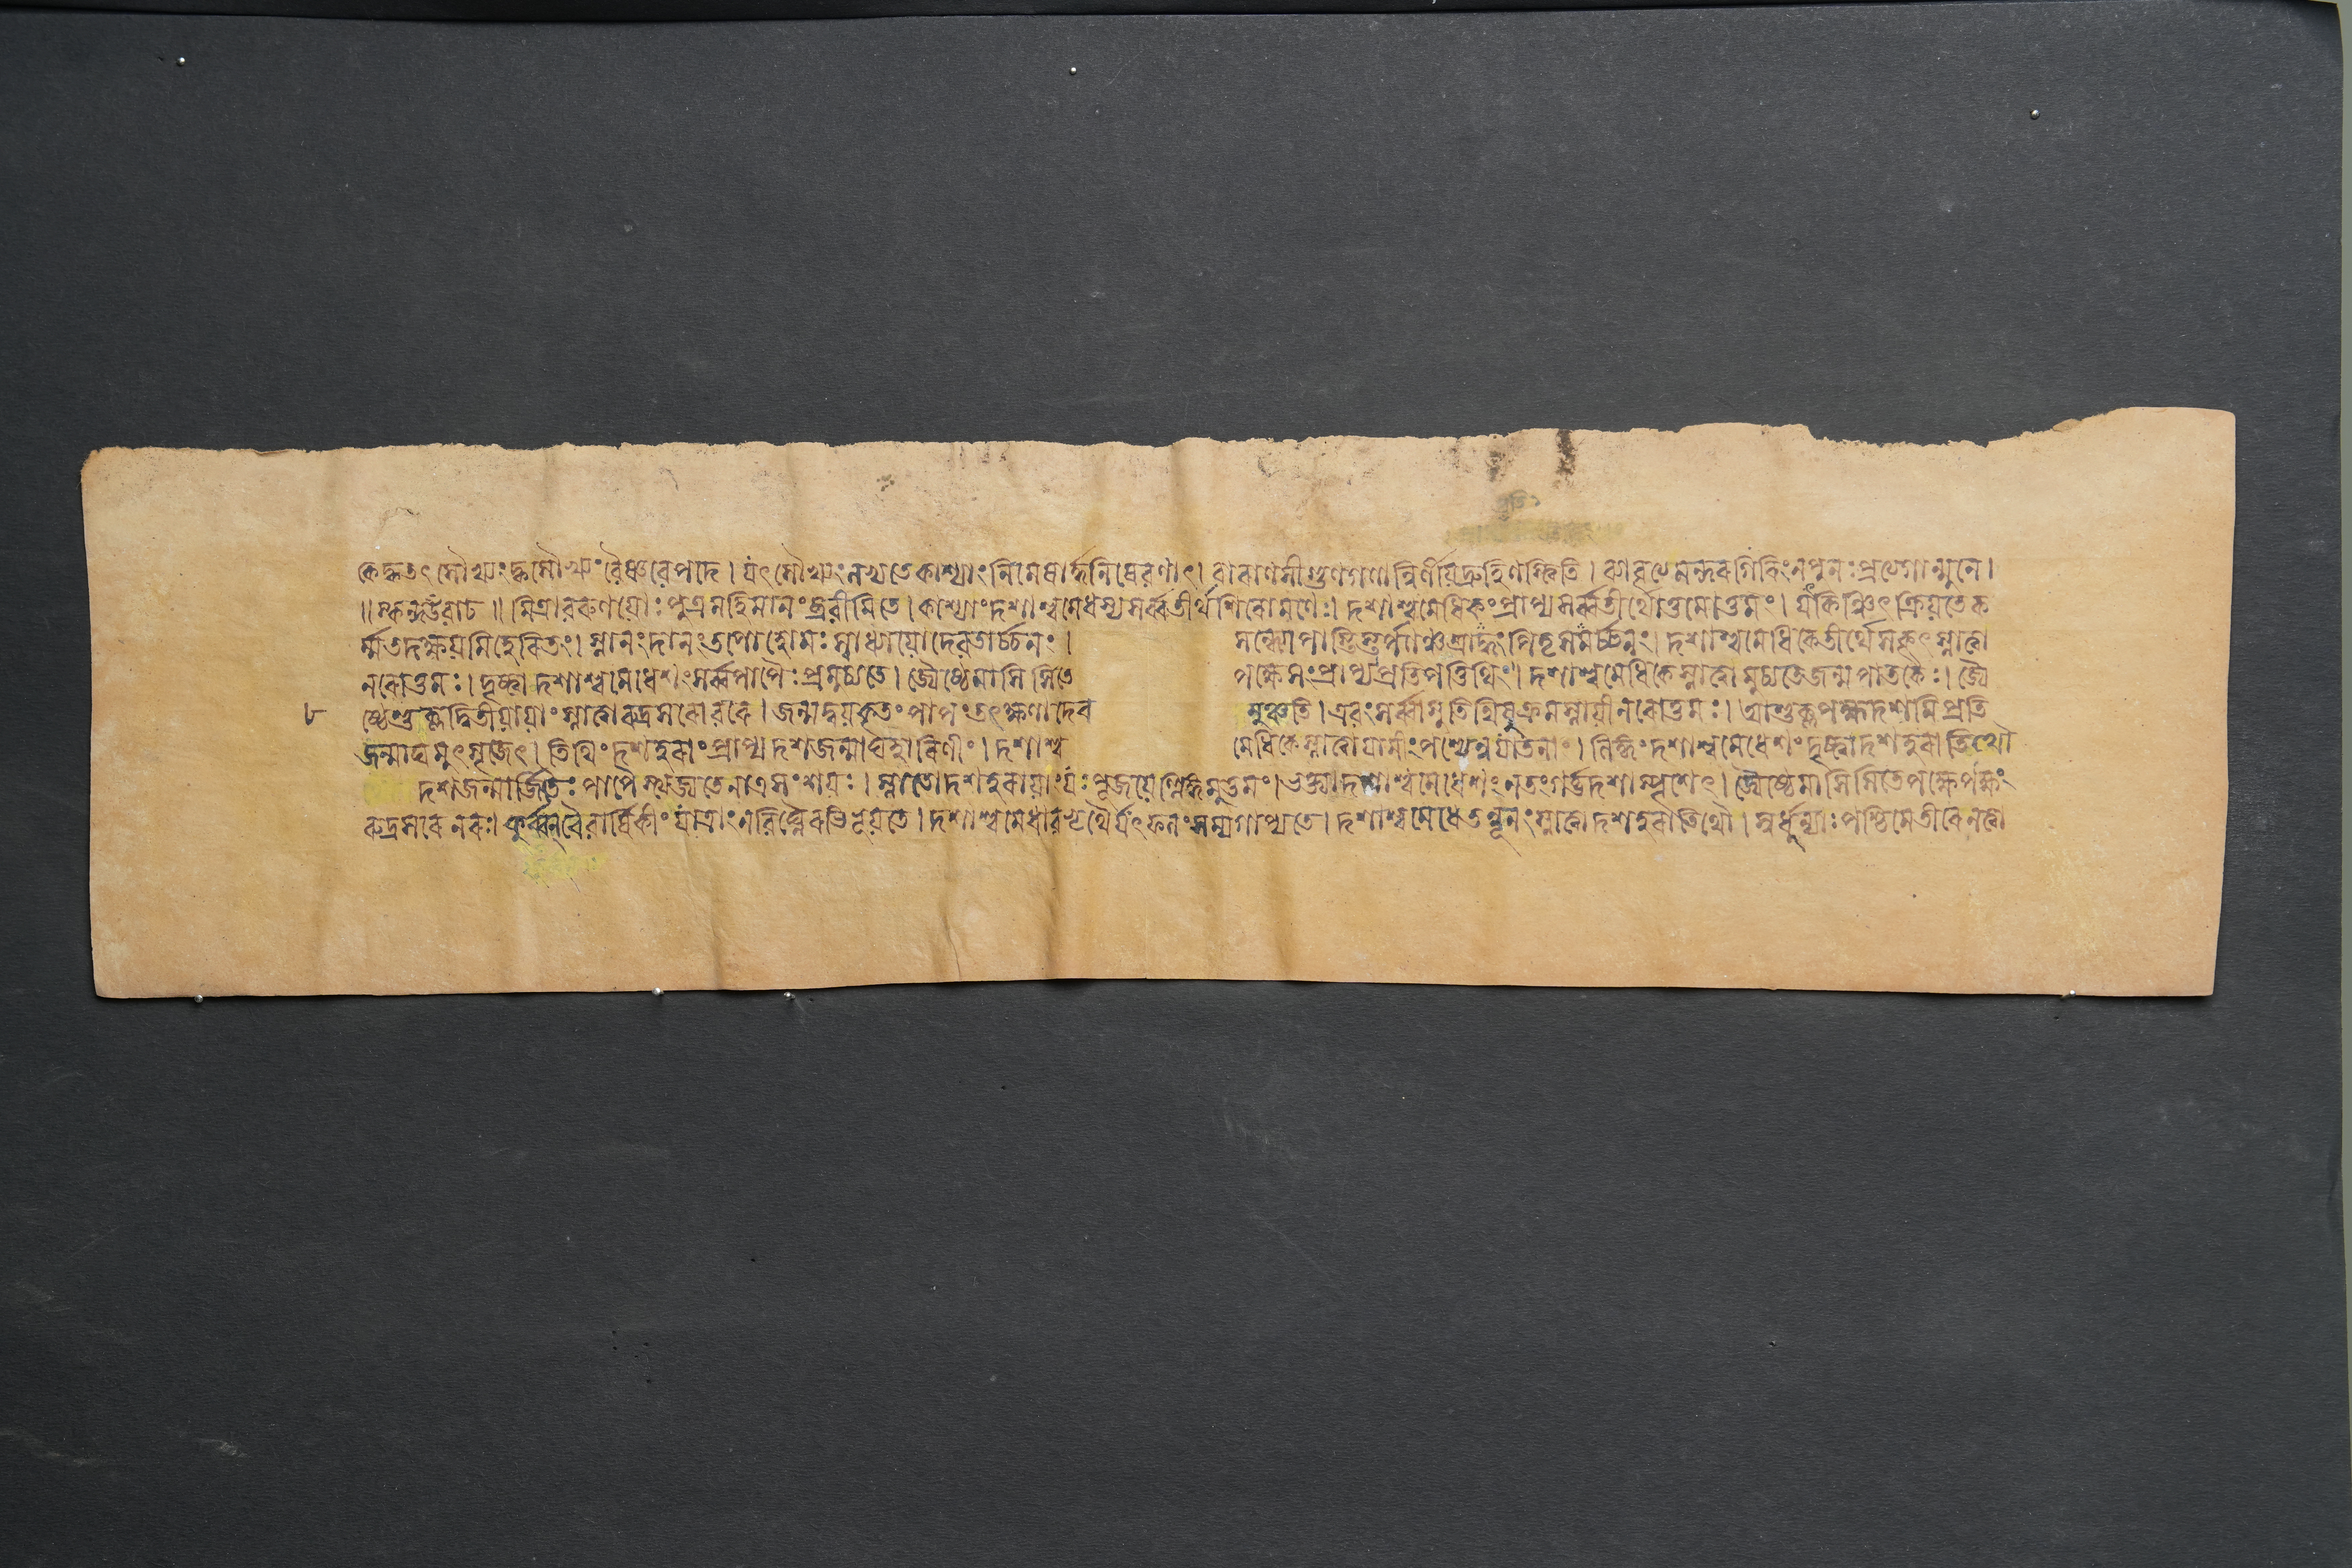 কেদ্ধতৎসৌখ্যংদ্ধসৌখ্যংবৈষ্ণবেপদে। যৎসৌখ্যংলভ্যতেকাশ্যাংনিমেষার্দ্ধনিষেবণাৎ। বারাণসীগুণগণান্নির্ণীয়দ্রুহিণস্থিতি। ব্যাবৃত্তেমন্দরগিরিংনপুনঃপ্রত্যগান্মুনে।
॥স্কন্দউবাচ॥ মিত্রাবরুণয়োঃপুত্রমহিমানংব্রবীমিতে। কাশ্যাংদশাশ্বমেধস্যসর্ব্বতীর্থশিরোমণেঃ। দশাশ্বমেধিকংপ্রাপ্যসর্ব্বতীর্থোত্তমোত্তমং। যৎকিঞ্চিৎক্রিয়তেক
র্ম্মতদক্ষয়মিহেরিতং। স্নানংদানংতপোহোমঃস্বাধ্যায়োদেবতার্চ্চনং। সন্ধ্যোপাস্তিস্তর্পণঞ্চশ্রাদ্ধংপিতৃসমর্চ্চনং। দশাশ্বমেধিকেতীর্থেসকৃৎস্নাত্বা
নরোত্তমঃ। দৃষ্ট্বাদশাশ্বমেধেশংসর্ব্বপাপৈঃপ্রমুচ্যতে। জ্যৈষ্ঠেমাসিসিতে পক্ষেসংপ্রাপ্যপ্রতিপত্তিথিং। দশাশ্বমেধিকেস্নাত্বামুচ্যতেজন্মপাতকৈঃ। জ্যৈ
৮ ষ্ঠেশুক্লদ্বিতীয়ায়াংস্নাত্বারুদ্রসরোবরে। জন্মদ্বয়কৃতংপাপংতৎক্ষণাদেব মুঞ্চতি। এবংসর্ব্বাসুতিথিষুক্রমস্নায়ীনরোত্তমঃ। আশুক্লপক্ষদশমিপ্রতি
জন্মাঘমুৎসৃজেৎ। তিথিংদশহরাংপ্রাপ্যদশজন্মাঘহারিণীং। দশাশ্ব মেধিকেস্নাত্বাযামীংপশ্যেন্নযাতনাং। লিঙ্গংদশাশ্বমেধেশংদৃষ্ট্বাদশহরাতিথৌ
দশজন্মার্জিতৈঃপাপৈস্ত্যজ্যতেনাত্রসংশয়ঃ। স্নাতোদশহরায়াংযঃপূজয়েল্লিঙ্গমুত্তমং। ভক্ত্যাদশাশ্বমেধেশংনতংগর্ভদশাস্পৃশেৎ। জ্যৈষ্ঠেমাসিসিতেপক্ষেপক্ষং
রুদ্রসরেনরঃ। কুর্ব্বন্‌বৈবার্ষিকীংযাত্রাংনবিঘ্নৈরভিভূয়তে। দশাশ্বমেধাবভৃথৈর্যৎফলংসম্যগাপ্যতে। দশাশ্বমেধেতন্নূনংস্নাত্বাদশহরাতিথৌ। স্বর্ধুন্যাঃপশ্চিমেতীরেনত্বা